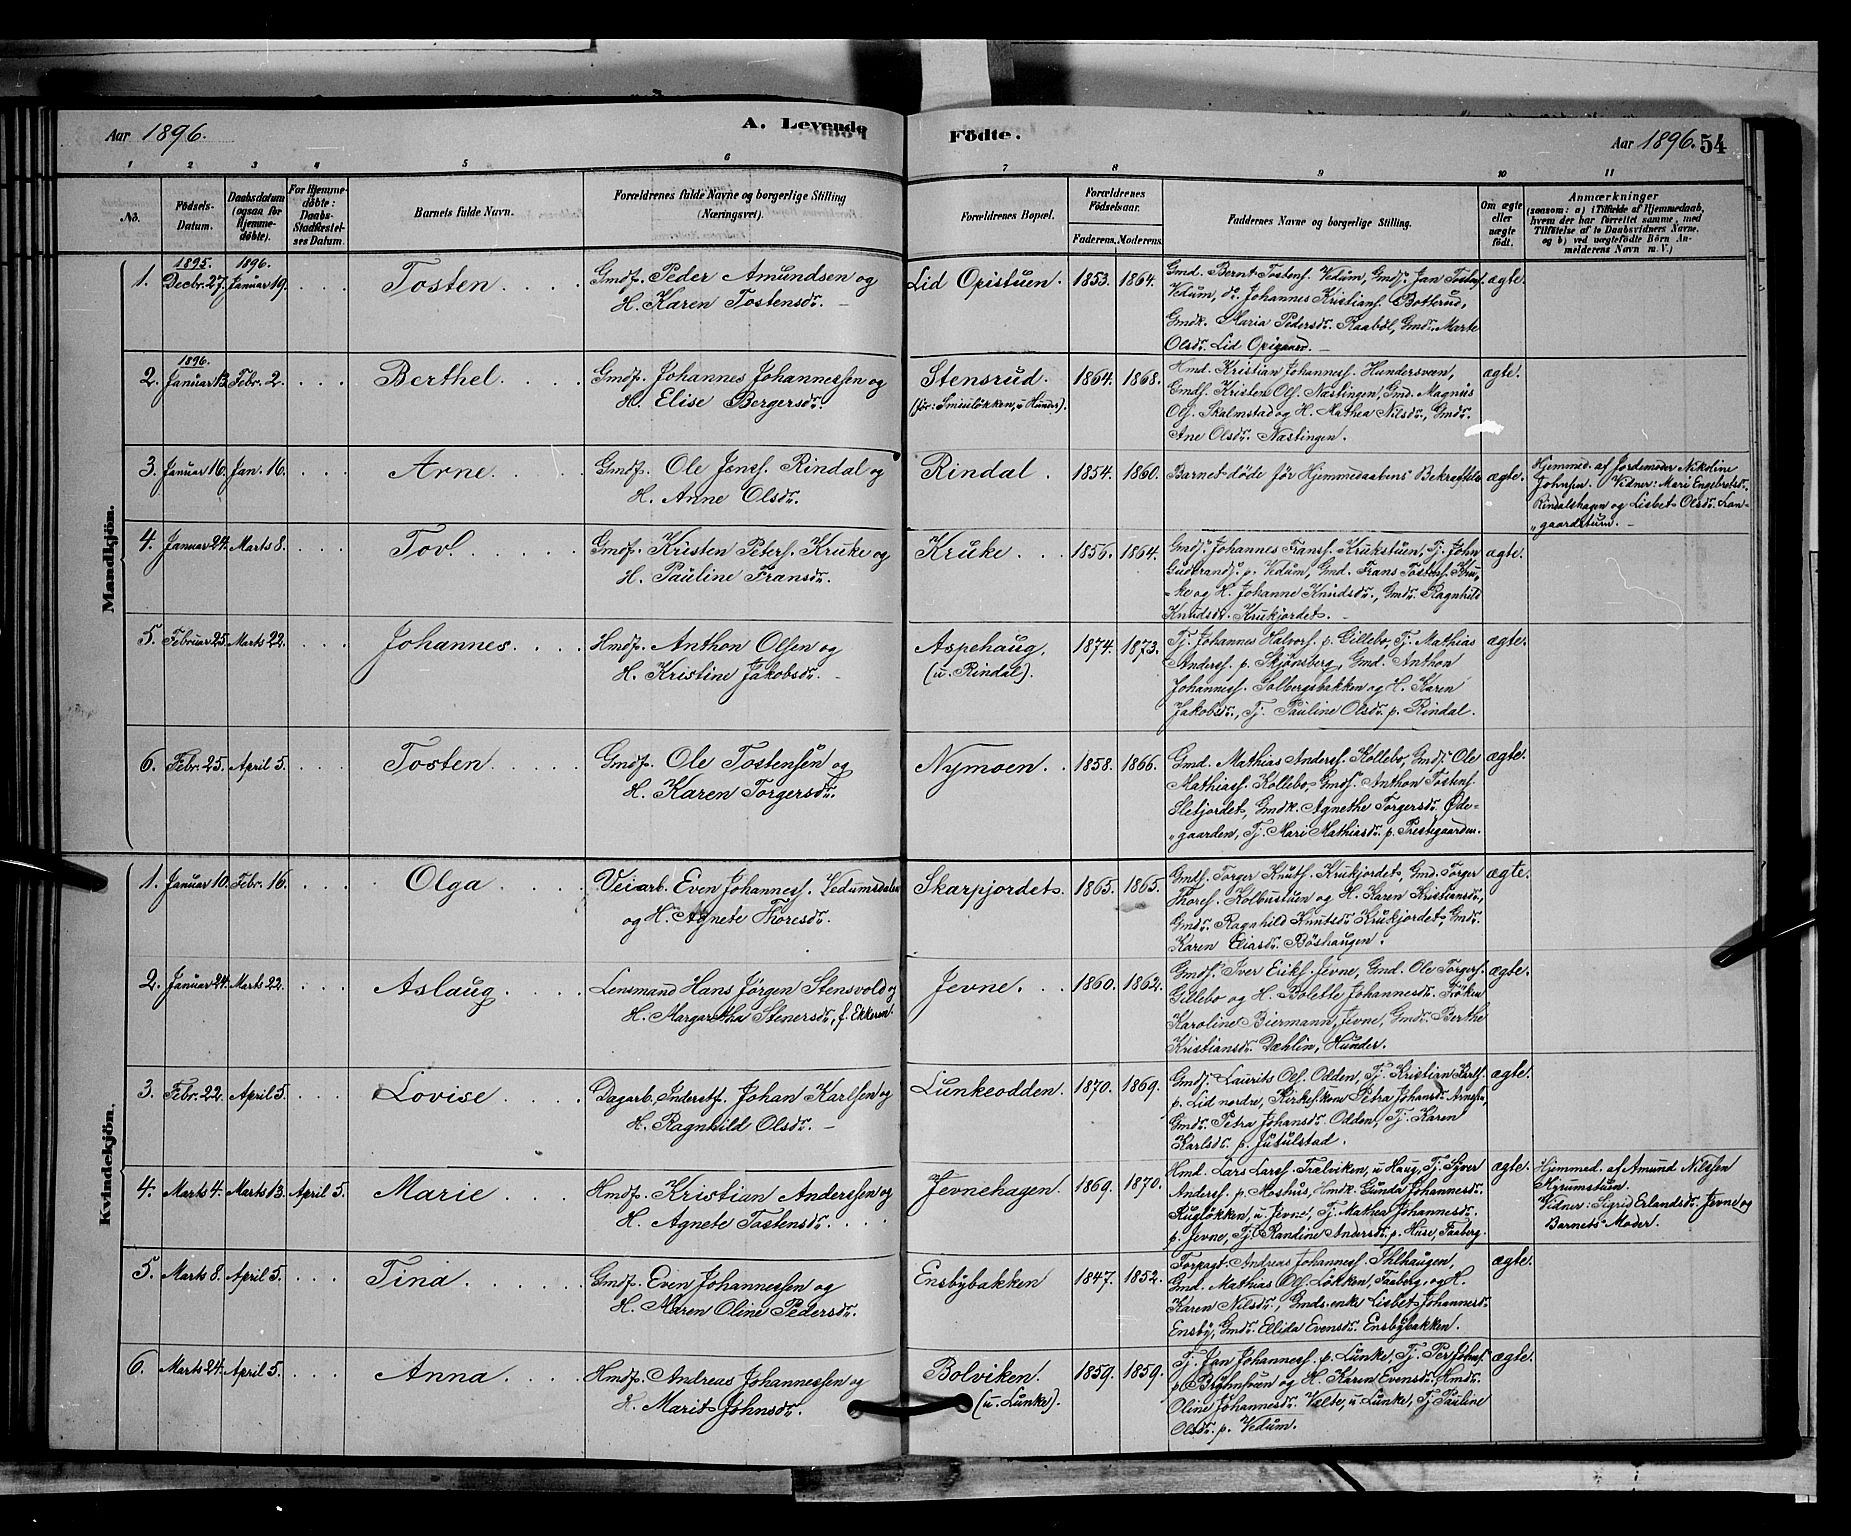 Aar 1896. A. Levende Födte. Aar 1896. 54
1 2 3 4 5 6 7 8 9 10 11
No. Födsels-Datum. Daabsdatum (ogsaa for Hjemme-döbte). For Hjemme-döbte: Daabs-Stadfæstel-ses Datum. Barnets fulde Navn. Forældrenes fulde Navne og borgerlige Stilling (Næringsvei). Forældrenes Bopæl. Forældrenes Födselsaar. Faderens. Moderens. Faddernes Navne og borgerlige Stilling. Om ægte eller uægte födt. Anmærkninger (saasom: a) i Tilfælde af Hjemmedaab, hvem der har forrettet samme, med Tilföielse af to Daabsvidners Navne, og b) ved uægtefödte Börn An-melderens Navn m. V.)
Mandkjön.
1895. 1896.
1. Decbr. 27. Januar 19. Tosten. Gmdf. Peder Amundsen og
H. Karen Tostensdr. —
Lid Opistuen. 1853. 1864.
Gmd. Bernt Tostens. Vedum, Gmds. Jan Tostens.
Vedum, do. Johannes Kristians. Botterud,
Gmdk. Maria Pedersdr. Raabøl, Gmdr. Marte
Olsdr. Lid Opigaard. —
ægte.
1896.
2. Januar 13. Febr. 2. Berthel. Gmdf. Johannes Johannessen og
H. Elise Bergersdr.
Stensrud. 1864. 1868.
(før: Smiuløkken, u. Hunder).
Hmd. Kristian Johanness. Hundersveen,
Gmds. Kristen Ols. Næstingen, Gmd. Magnus
Ols. Skalmstad og H. Mathea Nilsdr., Gmdr.
Ane Olsdr. Næstingen.
ægte.
3. Januar 16. Jan. 16. Arne. Gmdf. Ole Jens. Rindal og
H. Anne Olsdr.
Rindal. 1854. 1860.
Barnet døde før Hjemmedaabens Bekræftelse
ægte.
Hjemmed. af Jordemoder Nikoline
Johnsen. Vidner: Mari Engebretsdr.
Rindalshagen og Lisbet Olsdr. Lan-
"gaardstuen. —
4. Januar 24. Marts 8. Tov. Gmdf. Kristen Peters. Kruke og
H. Pauline Fransdr.
Kruke. 1856. 1864.
Gmds. Johannes Franss. Krukstuen, Tj. John
Gudbrands. p. Vedum, Gmd. Frans Tostens. Kru-
-ke og H. Johanne Knudsdr., Gmdr. Ragnhild
Knudsdr. Krukjordet. —
ægte.
5. Februar 25. Marts 22. Johannes. Hmdf. Anthon Olsen og
H. Kristine Jakobsdr. —
Aspehaug. 1874. 1873.
(u. Rindal).
Tj. Johannes Halvors. p. Gillebo, Tj. Mathias
Anderss. p. Skjønsberg, Gmd. Anthon
Johanness. Solbergsbakken og H. Karen
Jakobsdr., Tj. Pauline Olsdr. p. Rindal.
ægte.
6. Febr. 25. April 5. Tosten. Gmdf. Ole Tostensen og
H. Karen Torgersdr.
Nymoen. 1858. 1866.
Gmd. Mathias Anderss. Kollebo, Gmds. Ole
Mathiass. Kollebo, Gmds. Anthon Tostens.
Sletjordet, Gmdk. Agnethe Torgersdr. Øde-
"gaarden, Tj. Mari Mathiasdr. p. Prestegaarden.
ægte.
Kvindekjön.
1. Januar 10. Febr. 16. Olga. Veiarb. Even Johanness. Vedumsdalen
og H. Agnete Thoresdr.
Skarpjordet. 1865. 1865.
Gmds. Torger Knuts. Krukjordet, Gmd. Torger
Thores. Kolbustuen og H. Karen Kristiansdr.,
Gmdr. Ragnhild Knutsdr. Krukjordet, Gmdr.
Karen Eliasdr. Bøshaugen.
ægte.
2. Januar 24. Marts 22. Aslaug. Lensmand Hans Jørgen Stensvold og
H. Margaretha Stenersdr. f. Ekkeren.
Jevne. 1860. 1862.
Gmds. Iver Eriks. Jevne, Gmd. Ole Torgers.
Gillebo og H. Bolette Johannesdr. Frøken
Karoline Biermann, Jevne, Gmdr. Berthe
Kristiansdr. Dæhlin, Hunder.
ægte.
3. Febr. 22. April 5. Lovise. Dagarb. Inderstf. Johan Karlsen og
H. Ragnhild Olsdr. —
Lunkeodden. 1870. 1869.
Gmds. Laurits Ols. Odden, Tj. Kristian Karls.
p. Lid nordre, Kirkes.kone Petra Johansdr. Arnesen,
Gmdr. Petra Johansdr. Odden, Tj. Karen
Karlsdr. p. Jutulstad.
ægte.
4. Marts 4. Marts 13. April 5. Marie. Hmdf. Kristian Anderssen og
H. Agnete Tostensdr.
Jevnehagen. 1869. 1870.
Hmd. Lars Larss. Trælviken, u. Haug, Tj. Syver
Anderss. p. Moshus, Hmdk. Gunda Johannesdr.
Kugløkken, u. Jevne, Tj. Mathea Johannesdr.
p. Jevne, Tj. Randine Andersdr. p. Huse, Faaberg.
ægte.
Hjemmed. af Amund Nilssen
Myrumstuen.
Vidner: Sigrid Erlandsdr. Jevne og
Barnets Moder.
5. Marts 8. April 5. Tina. Gmdf. Even Johannessen og
H. Maren Oline Pedersdr.
Ensbybakken 1847. 1852.
Forpagt. Andreas Johanness. Ihlhaugen,
Gmd. Mathias Ols. Løkken, Faaberg, og H.
Karen Nilsdr., Gmds. enke Lisbet Johannesdr.
Ensby, Gmdr. Ellida Evensdr. Ensbybakken.
ægte.
6. Marts 24. April 5. Anna. Hmdf. Andreas Johannessen og
H. Marit Johnsdr.
Bolviken. 1859. 1859.
(u. Lunke).
Tj. Jan Johanness. p. Lunke, Tj. Per Johs.
p. Bryhnsveen og H. Karen Evensdr. Hmdr.
Oline Johannesdr. Valse, u. Lunke, Tj. Pauline
Olsdr. p. Vedum.
ægte.